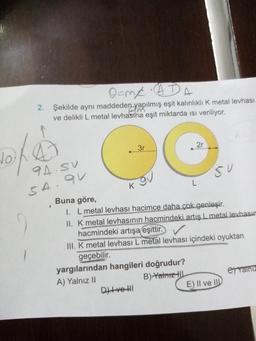 Q=m
2. Şekilde aynı maddeden yapılmış eşit kalınlıklı K metal levhası
ve delikli L metal levhasına eşit miktarda ısı veriliyor.
3r
2r
K
L
9V
5V
9A.5V
5A.9V
Buna göre,
I. L metal levhası hacimce daha çok genleşir.
II. K metal levhasının hacmindeki artış L metal levhasının
hacmindeki artışa eşittir.
III. K metal levhası L metal levhası içindeki oyuktan
geçebilir.
yargılarından hangileri doğrudur?
A) Yalnız II
B) Yalnız III
D) I ve III
E) II ve III